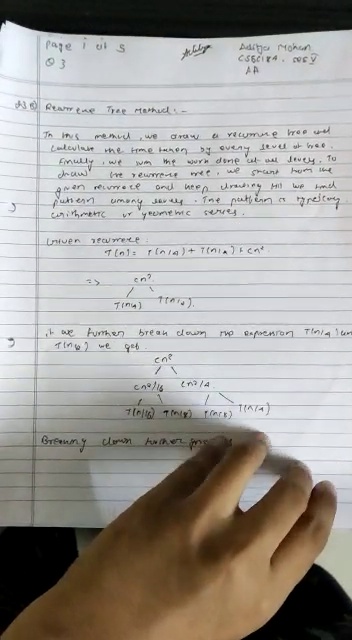 Page 1 of 5
Aditya Mohan
Q 3
CSE
AA
Recurrence Tree Method: -
In this method, we draw a recurrence tree and
calculate the time taken by every level of tree.
Finally, we sum the work done at all levels. To
draw the recurrence tree, we start from the
given recurrence and keep drawing till we find
pattern among levels. The pattern is typically
arithmetic or geometric series.
Given recurrence
T(n) = T(n/4) + T(n/2) + cn²
=> cn²
T(n/4) T(n/2).
if we further break down the expression T(n/4) and
T(n/2) we get
cn²
cn²/16 cn²/4
T(n/16) T(n/8) T(n/8) T(n/4)
Breaking down further